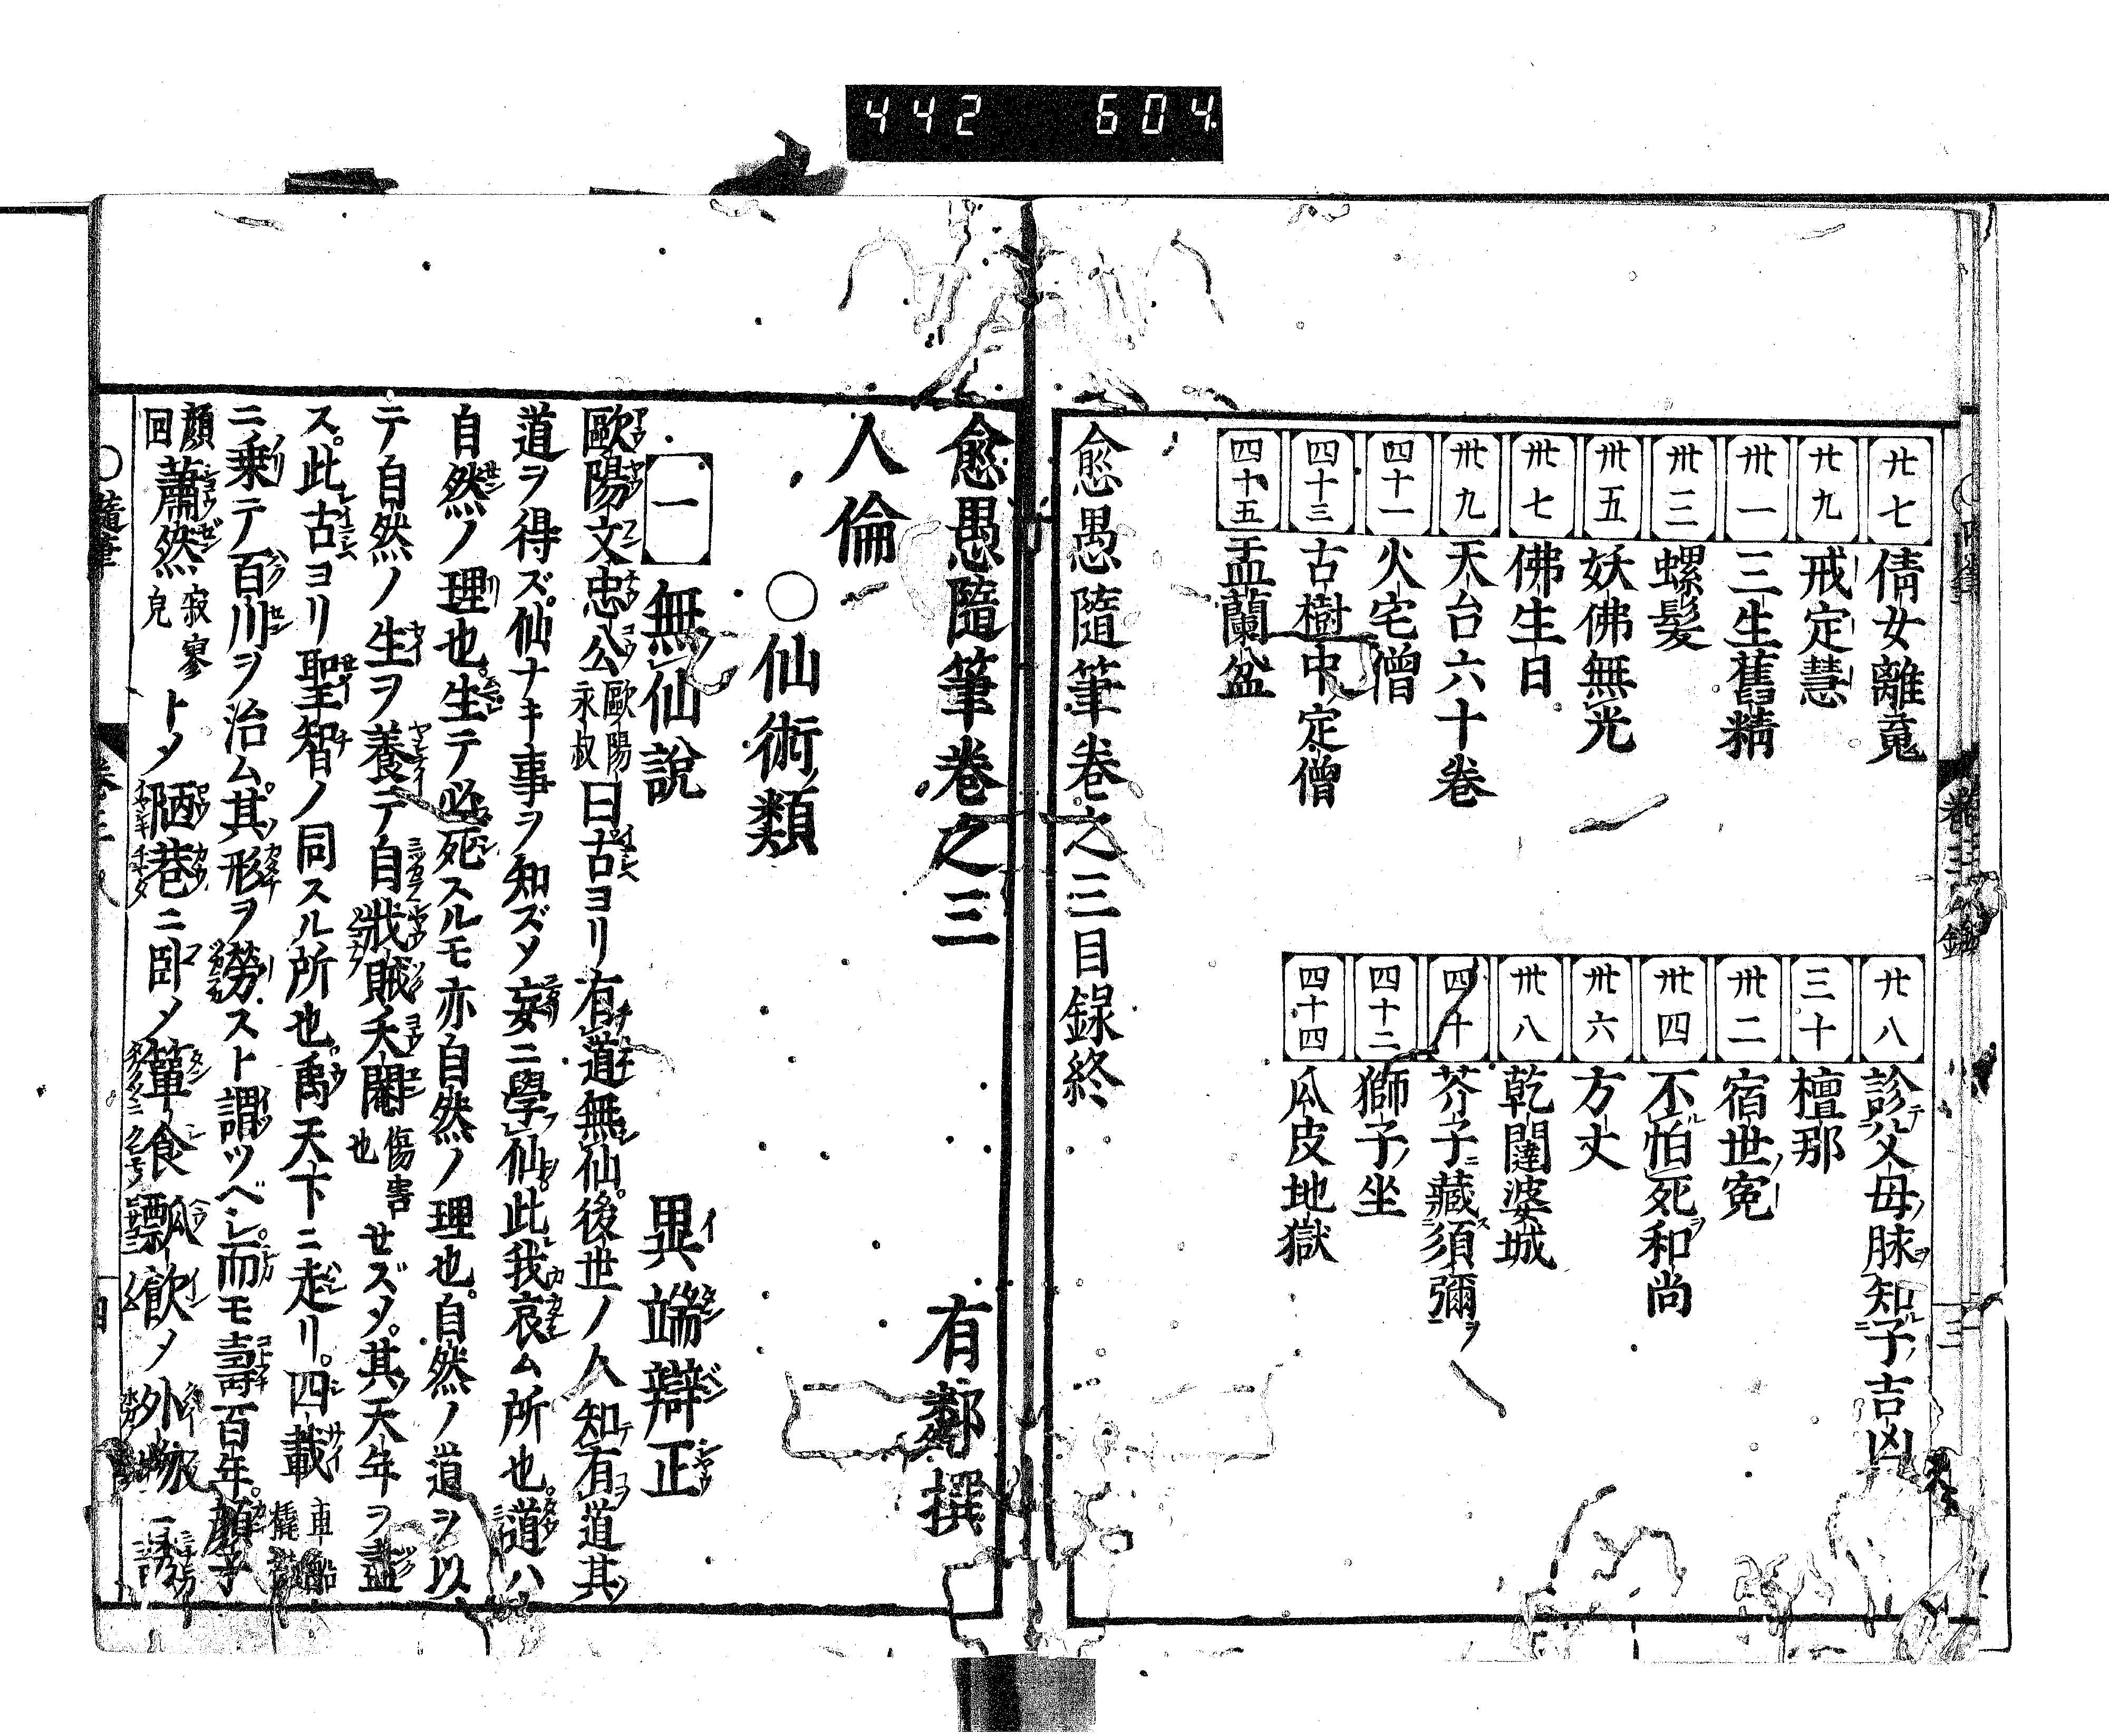 442 604
廿七 倩女離䰟
廿八 診父母脉知子吉凶
廿九 戒定慧
三十 檀那
卅一 三生舊精
卅二 宿世寃
卅三 螺髪
卅四 不怕死和尚
卅五 妖佛無光
卅六 方丈
卅七 佛生日
卅八 乾闥婆城
卅九 天台六十巻
四十 芥子藏須彌
四十一 火宅僧
四十二 獅子坐
四十三 古樹中定僧
四十四 瓜皮地獄
四十五 盂蘭盆
愈愚隨筆巻之三目録終
愈愚隨筆巻之三 有鄰撰
人倫
○仙術類
一 無仙說 異端辯正
歐陽文忠公歐陽永叔曰古ヨリ有道無仙後世ノ人知有道其
道ヲ得ズ仙ナキ事ヲ知ズメ妄ニ學仙此我哀ム所也道ハ
自然ノ理也生テ必死スルモ亦自然ノ理也自然ノ道ヲ以
テ自然ノ生ヲ養テ自戕賊夭閼傷害也セズメ其天年ヲ盡
ス此古ヨリ聖智ノ同スル所也禹天下ニ走リ四載車船橇
ニ乗テ百川ヲ治ム其形ヲ勞スト謂ツベシ而モ壽百年顔子
顔回蕭然寂寥皃トメ陋巷ニ臥メ簞食瓢飲メ外物